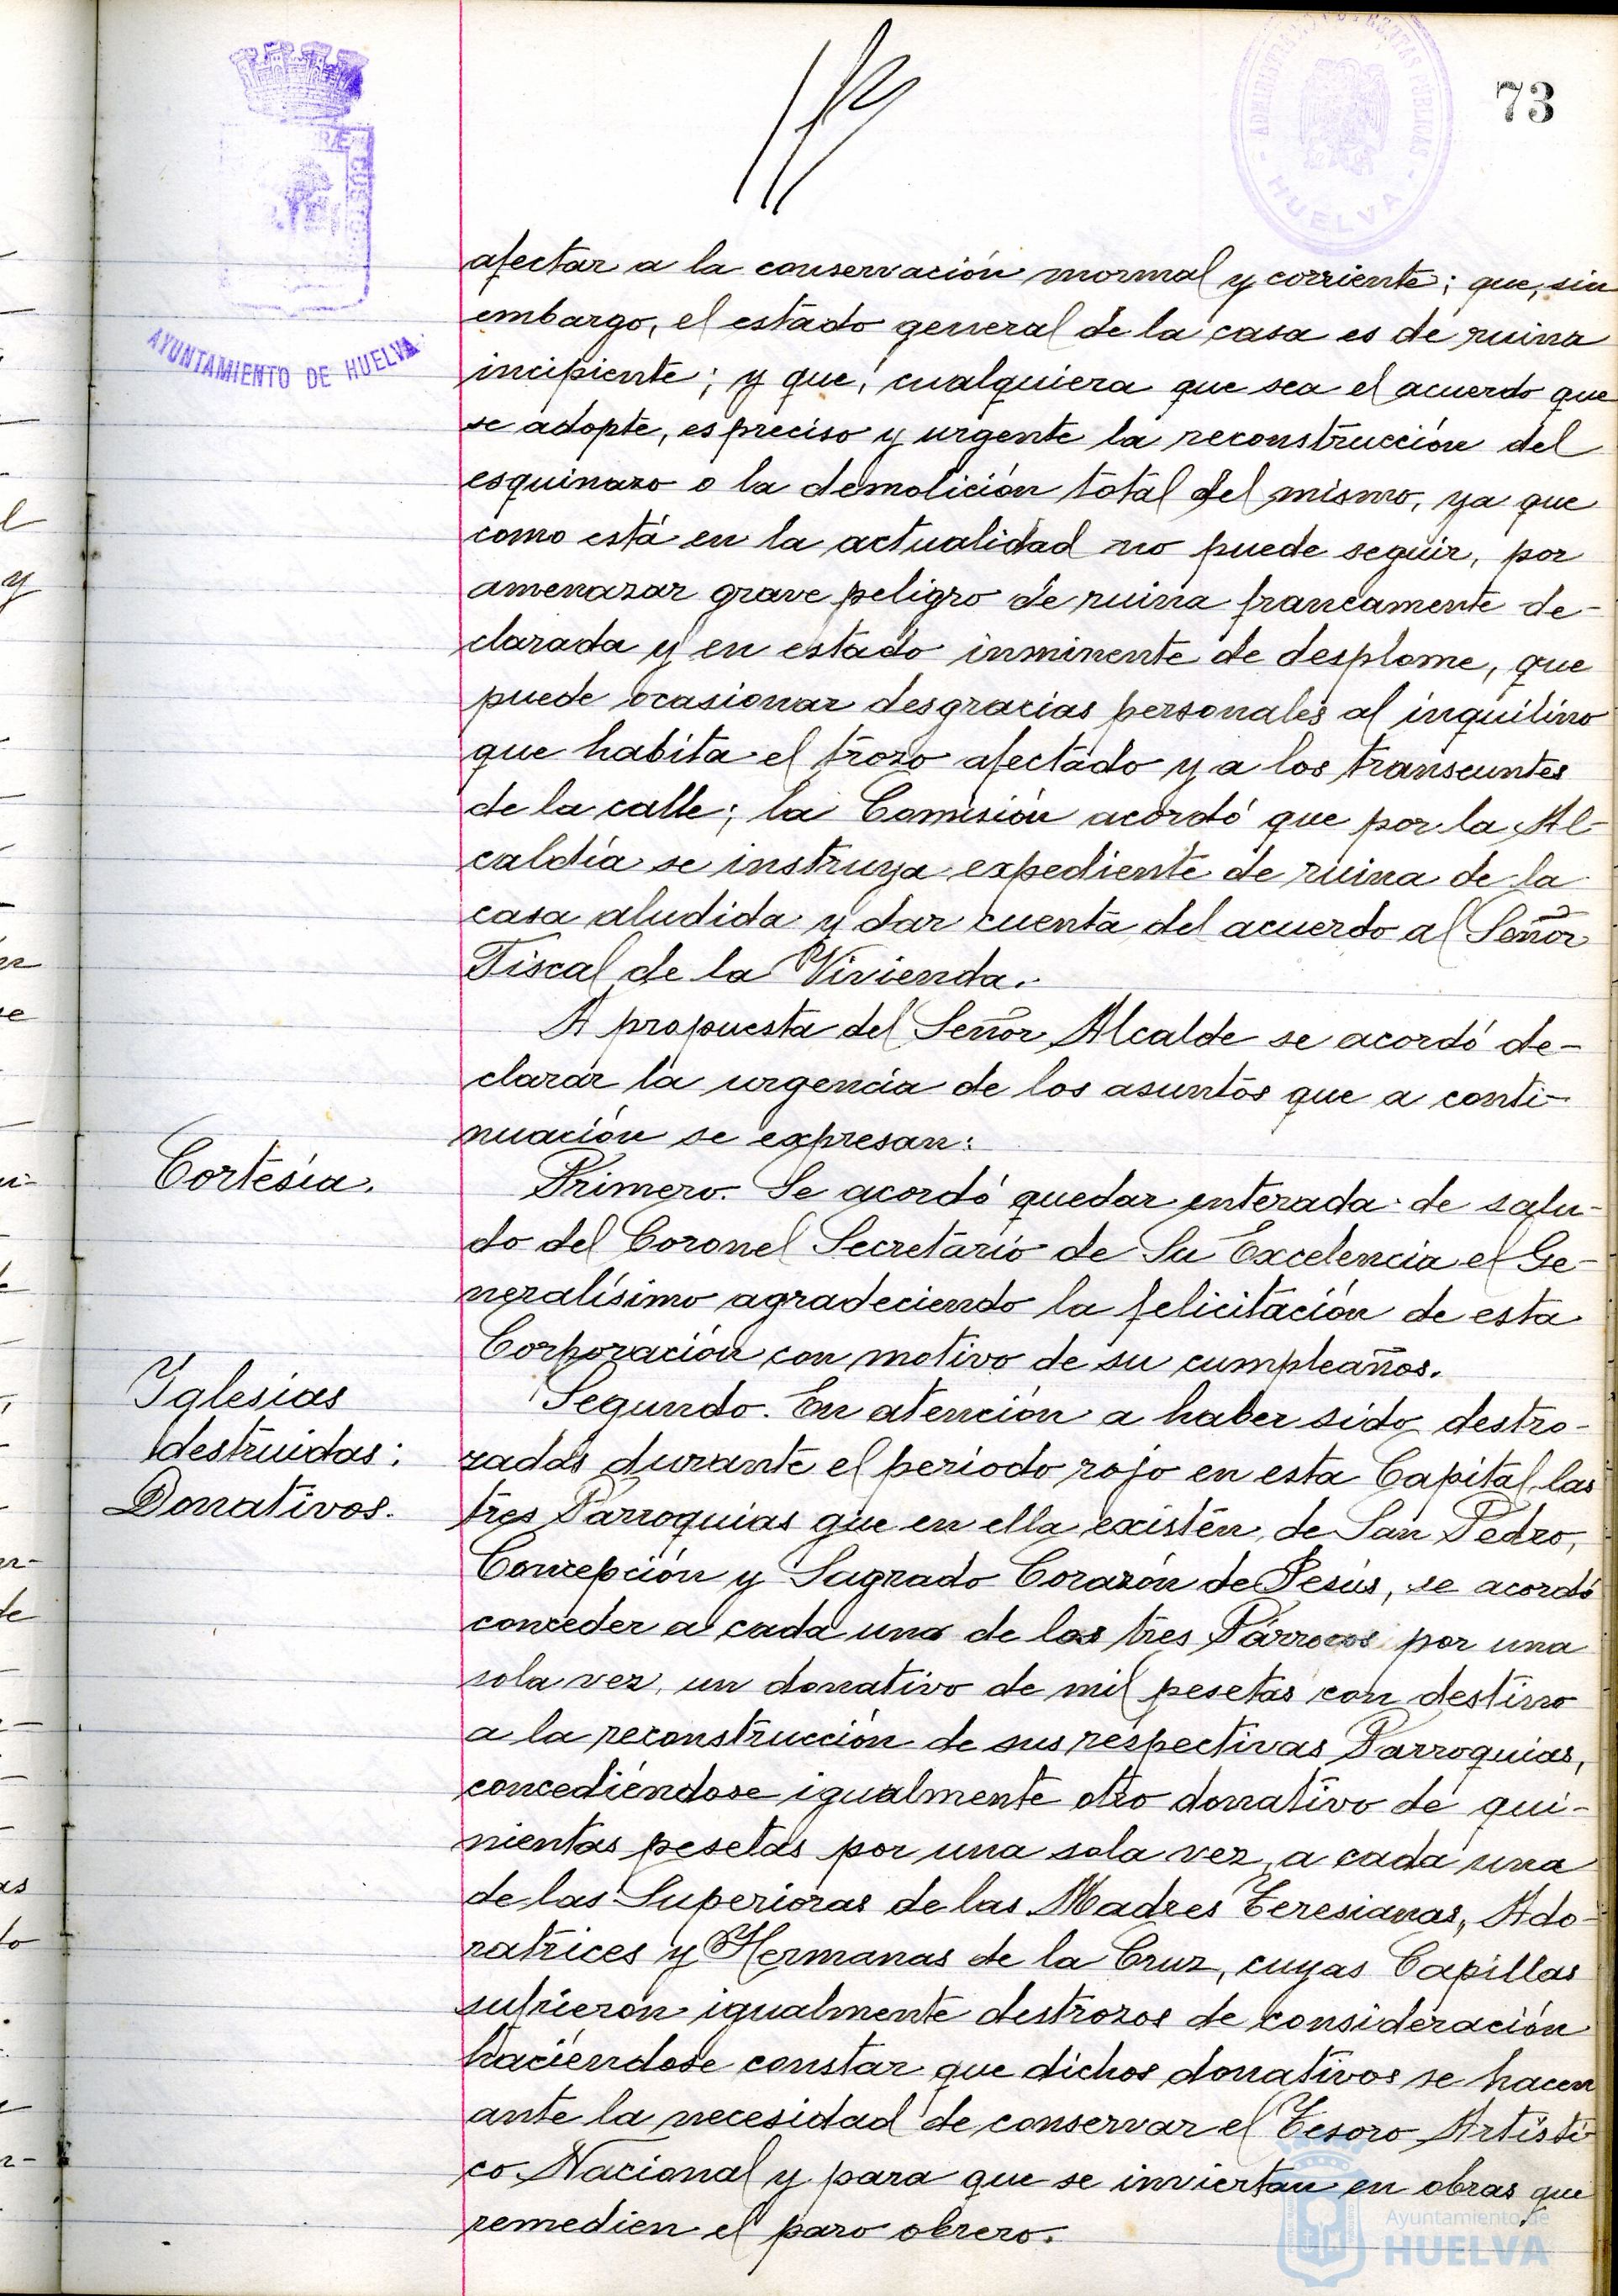 73
AYUNTAMIENTO DE HUELVA
HUELVA
afectar a la conservación normal y corriente; que, sin
embargo, el estado general de la casa es de ruina
incipiente; y que, cualquiera que sea el acuerdo que
se adopte, es preciso y urgente la reconstrucción del
esquinazo o la demolición total del mismo, ya que
como está en la actualidad no puede seguir, por
amenazar grave peligro de ruina francamente de-
clarada y en estado inminente de desplome, que
puede ocasionar desgracias personales al inquilino
que habita el trozo afectado y a los transeuntes
de la calle; la Comisión acordó que por la Al-
caldía se instruya expediente de ruina de la
casa aludida y dar cuenta del acuerdo al Señor
Fiscal de la Vivienda.
A propuesta del Señor Alcalde se acordó de-
clarar la urgencia de los asuntos que a conti-
nuación se expresan:
Cortesía.
Primero. Se acordó quedar enterada de salu-
do del Coronel Secretario de Su Excelencia el Ge-
neralísimo agradeciendo la felicitación de esta
Corporación con motivo de su cumpleaños.
Iglesias
destruidas:
Donativos.
Segundo. En atención a haber sido destro-
zadas durante el período rojo en esta Capital las
tres Parroquias que en ella existen, de San Pedro,
Concepción y Sagrado Corazón de Jesús, se acordó
conceder a cada uno de los tres Párrocos por una
sola vez, un donativo de mil pesetas con destino
a la reconstrucción de sus respectivas Parroquias,
concediéndose igualmente otro donativo de qui-
nientas pesetas por una sola vez, a cada una
de las Superioras de las Madres Teresianas, Ado-
ratrices y Hermanas de la Cruz, cuyas Capillas
sufrieron igualmente destrozos de consideración
haciéndose constar que dichos donativos se hacen
ante la necesidad de conservar el Tesoro Artísti-
co Nacional y para que se inviertan en obras que
remedien el paro obrero.
Ayuntamiento de
HUELVA